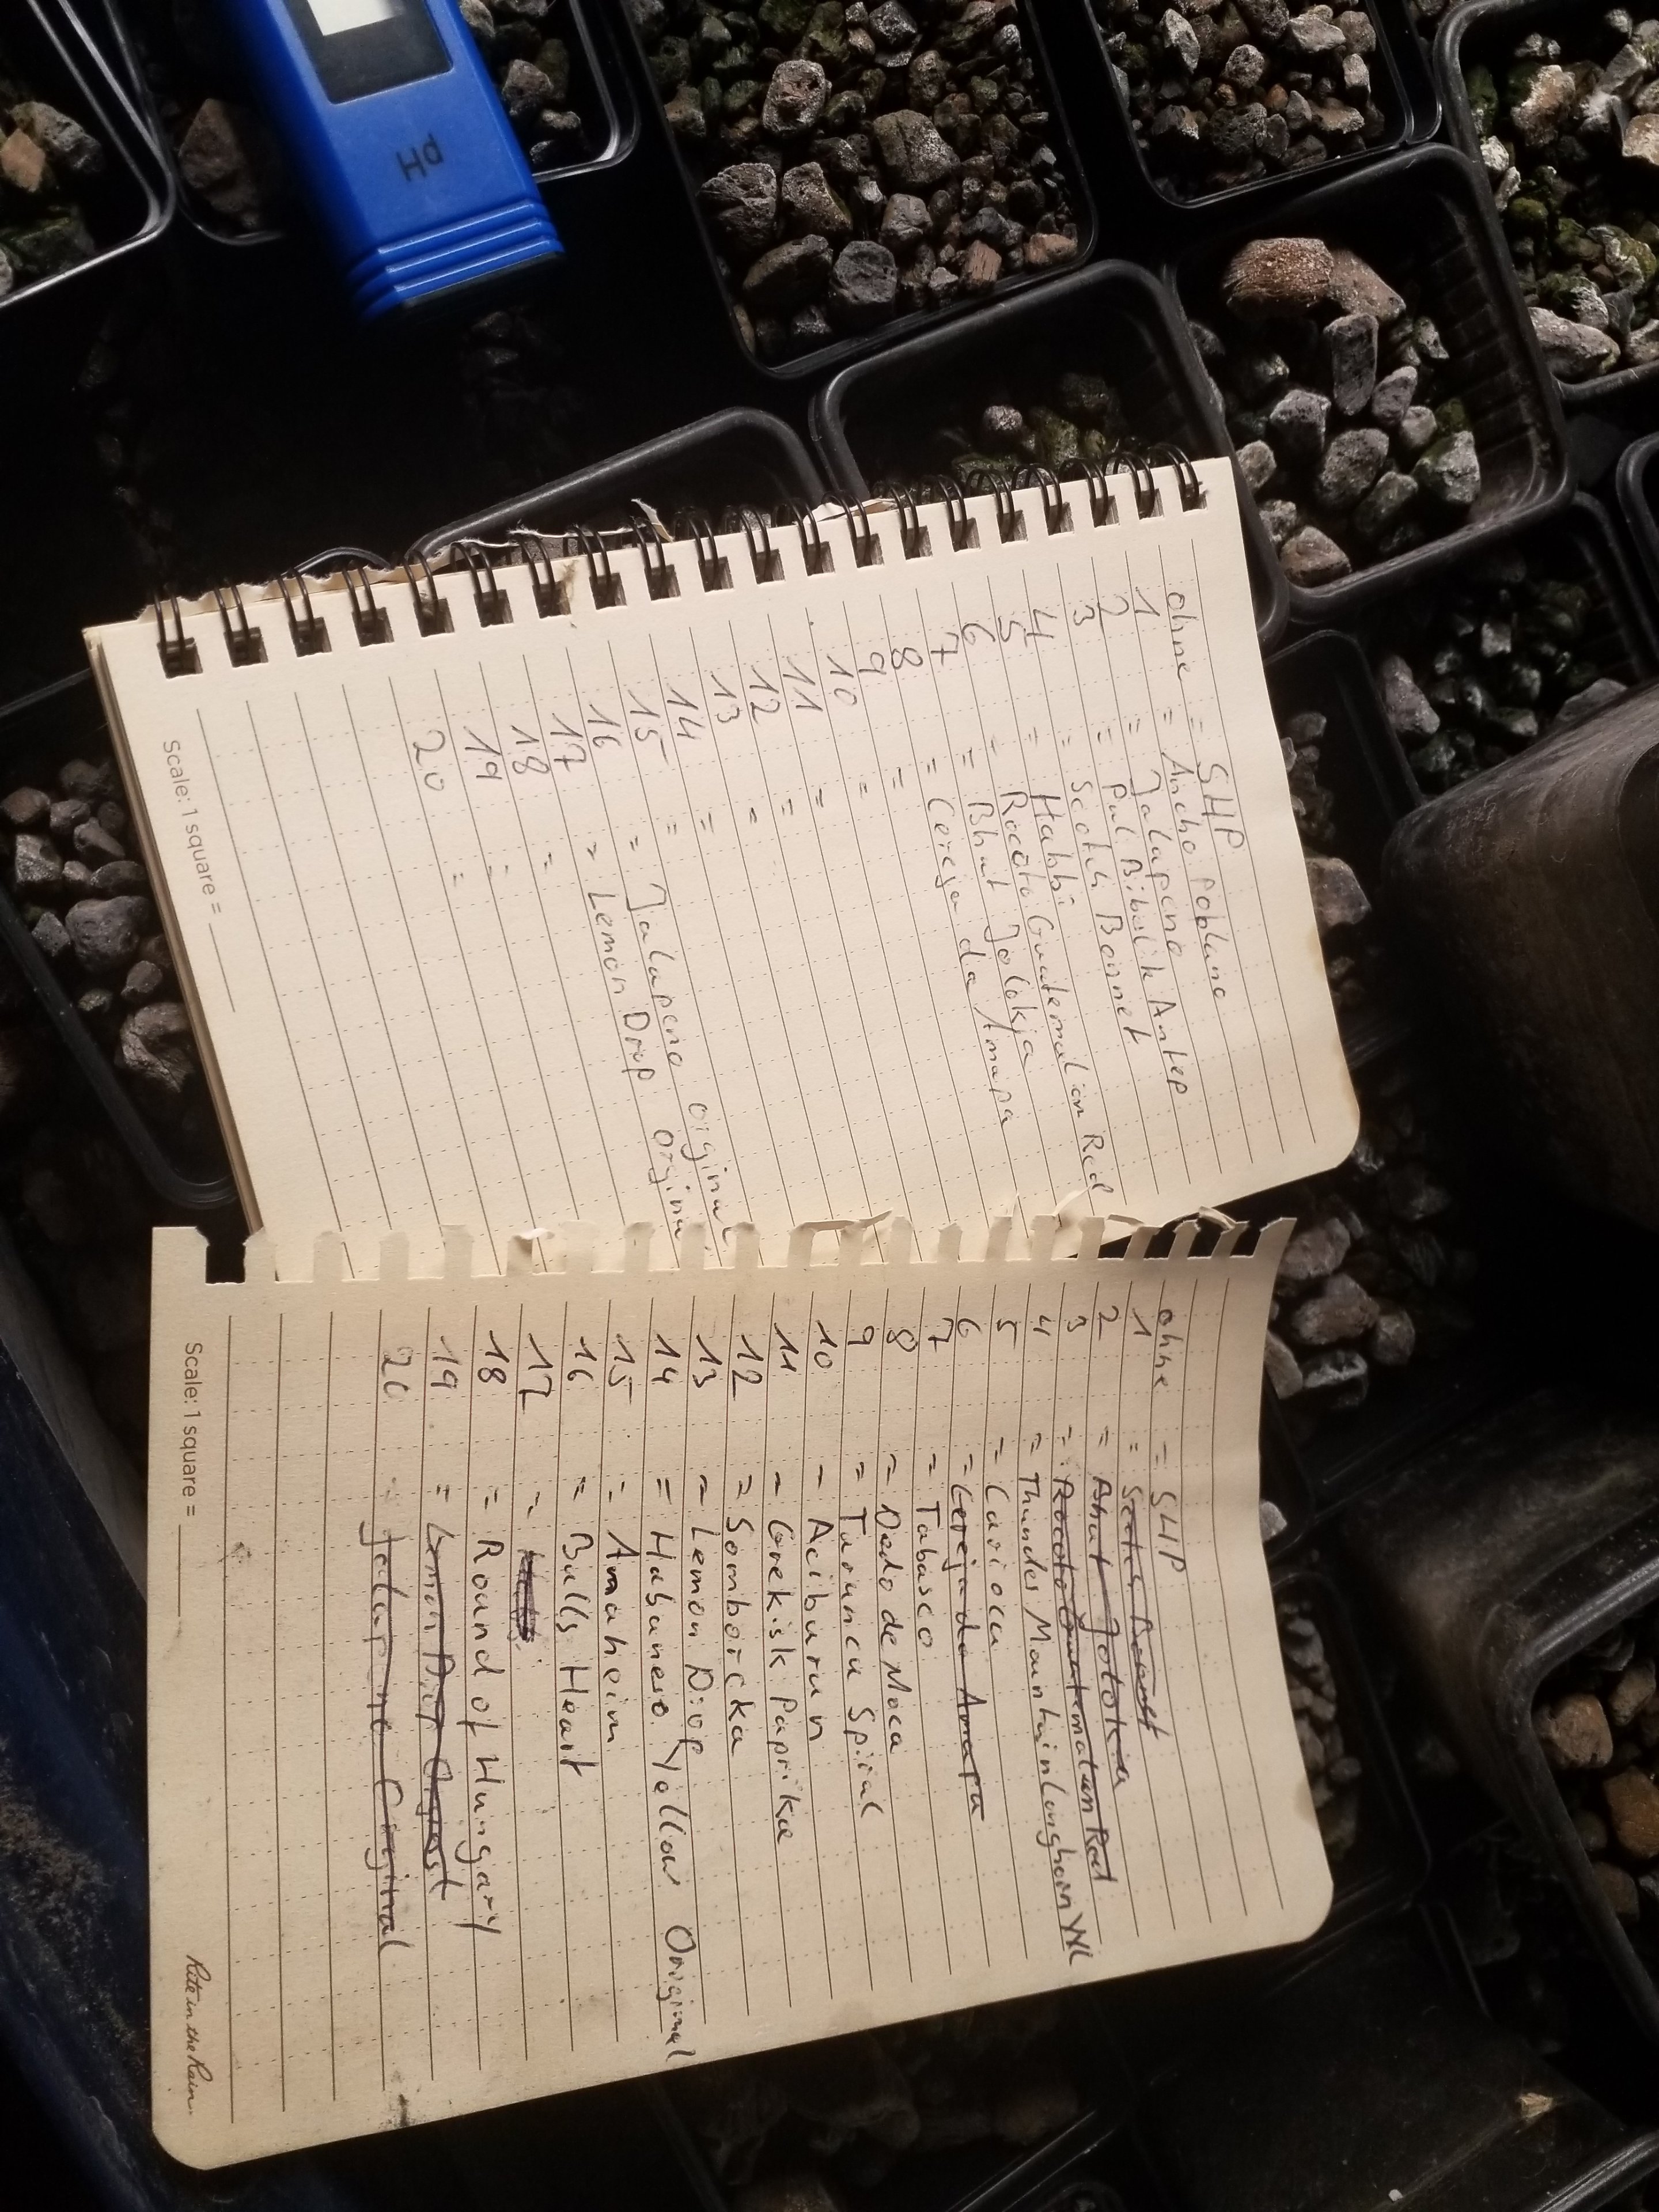 pH
ohne = SHP
1 = Ancho poblano
2 = Jalapeno
3 = Pul Biberlik Antep
4 = Scotch Bonnet
5 = Habbi
6 = Rocoto Guatemalian Red
7 = Bhut Jolokja
8 = Cereja da Amapa
9 =
10 =
11 =
12 =
13 =
14 =
15 =
16 = Jalapeno original
17 = Lemon Drop orginal
18 =
19 =
20 =
Scale: 1 square =
ohne = SHP
1 = Scotch Bonnet
2 = Bhut Jolokia
3 = Rocoto Guatemalan Red
4 = Thunder Mountain Longhorn
5 = Carioca
6 = Cereja da Amapa
7 = Tabasco
8 = Dedo de Moca
9 = Taranica Spiral
10 = Aciburun
11 = Grekisk Paprika
12 = Somborcka
13 = Lemon Drop
14 = Habanero Yellow Original
15 = Anaheim
16 = Bulls Heart
17 =
18 = Round of Hungary
19 = Lemon Drop
20 = Jalapeno Original
Scale: 1 square =
Rite in the Rain